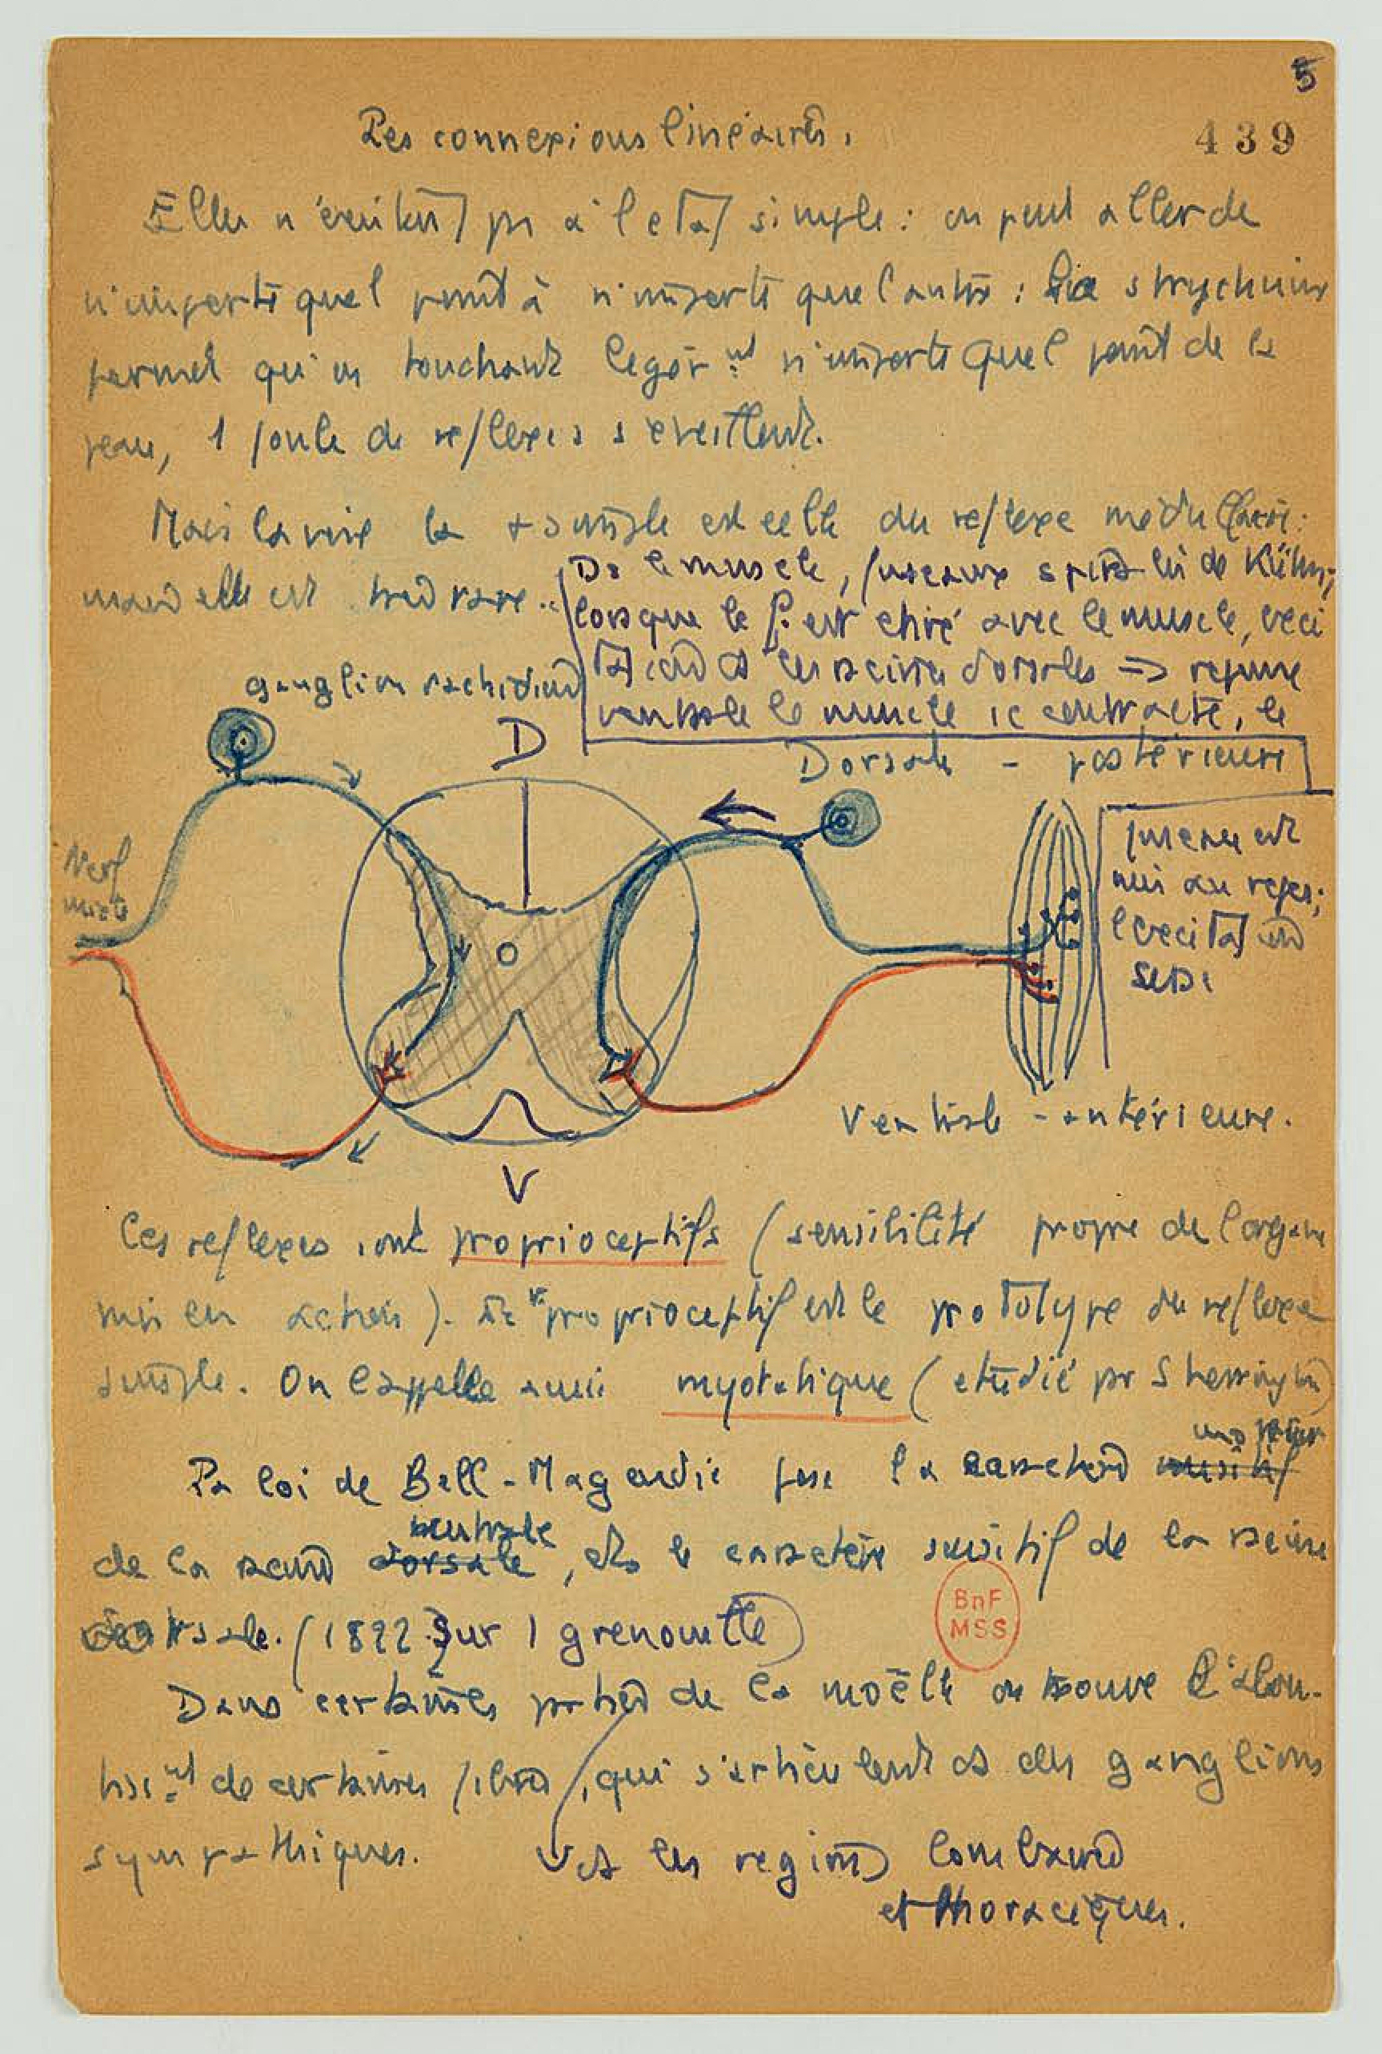 5
439
Les connexions linéaires.
Elles n'existent pas à l'état simple : on peut aller de
n'importe quel point à n'importe quel autre : la strychnine
permet qu'en touchant légèr^nt n'importe quel point de la
peau, 1 foule de réflexes s'éveillent.
Mais la voie la + simple est celle du réflexe médullaire :
mais elle est très rare.
Ds le muscle, fuseaux de Kühne,
lorsque le f. est étiré avec le muscle, l'exci
tation les racines dorsales => réponse
ventrale le muscle se contracte, le
fuseau est
mis au repos ;
l'excitation
cesse
ganglion rachidien
D
Dorsale - postérieure
Nerf
mixte
V
Ventrale - antérieure.
Ces réflexes sont proprioceptifs (sensibilité propre de l'organe
mis en action). proprioceptif est le prototype du réflexe
simple. On l'appelle aussi myotatique (étudié par Sherrington)
moteur
La loi de Bell-Magendie pose le caractère sensitif
ventrale
de la racine dorsale, et le caractère sensitif de la racine
dorsale. (1822 sur 1 grenouille)
Dans certaines parties de la moëlle on trouve l'abou-
tiss^nt de certaines fibres, qui s'articulent des ganglions
sympathiques.
les régions lombaires
et thoraciques.
BnF
MSS